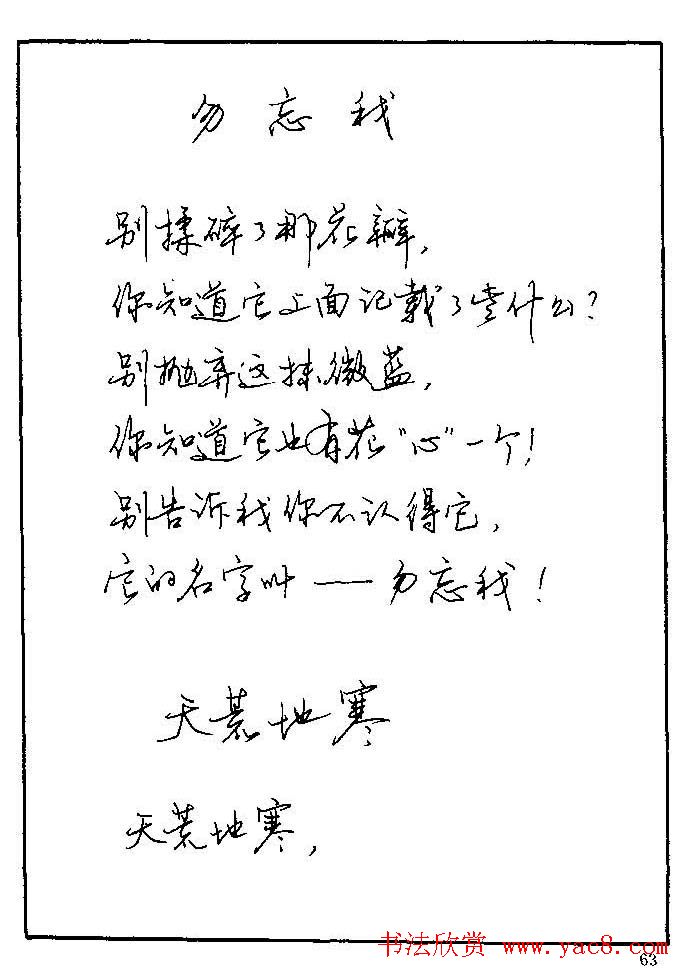 勿忘我
别揉碎了那花瓣，
你知道它上面记载了些什么？
别抛弃这抹微蓝，
你知道它也有花“心”一个！
别告诉我你不认得它，
它的名字叫——勿忘我！
天荒地寒
天荒地寒，
书法欣赏 www.yac8.com
63